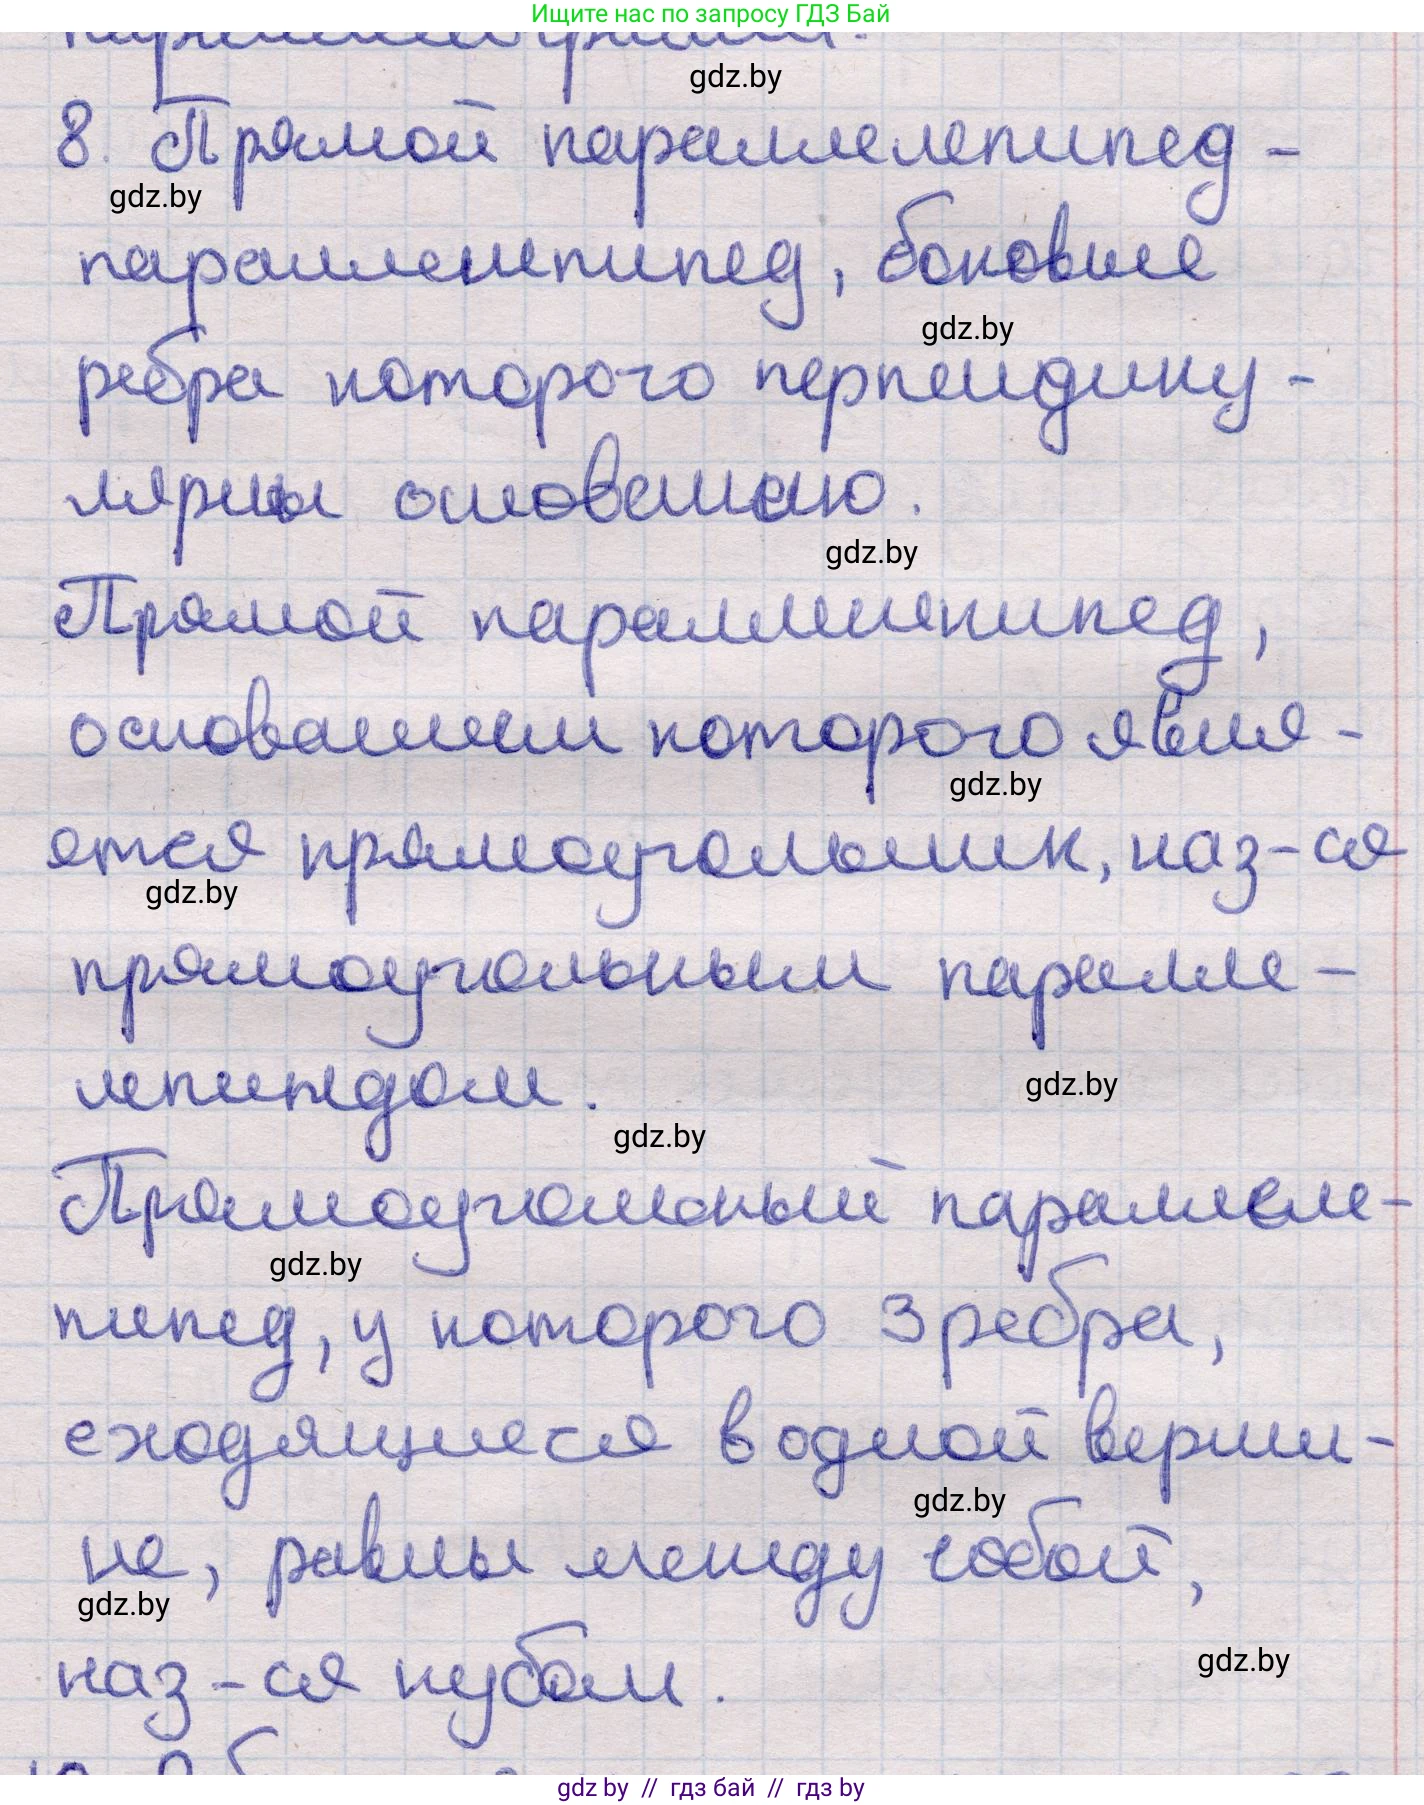 Ищите нас по запросу ГДЗ Бай
gdz.by
8. Прямой параллелепипед -
gdz.by
параллелепипед, боковые
gdz.by
ребра которого перпендику-
лярны основанию.
gdz.by
Прямой параллелепипед,
основанием которого явля-
gdz.by
ется прямоугольник, наз-ся
gdz.by
прямоугольным паралле-
лепипедом.
gdz.by
gdz.by
Прямоугольный параллеле-
gdz.by
пипед, у которого 3 ребра,
сходящиеся в одной верши-
gdz.by
не, равны между собой,
gdz.by
наз-ся кубом.
gdz.by
gdz by // гдз бай // гдз by